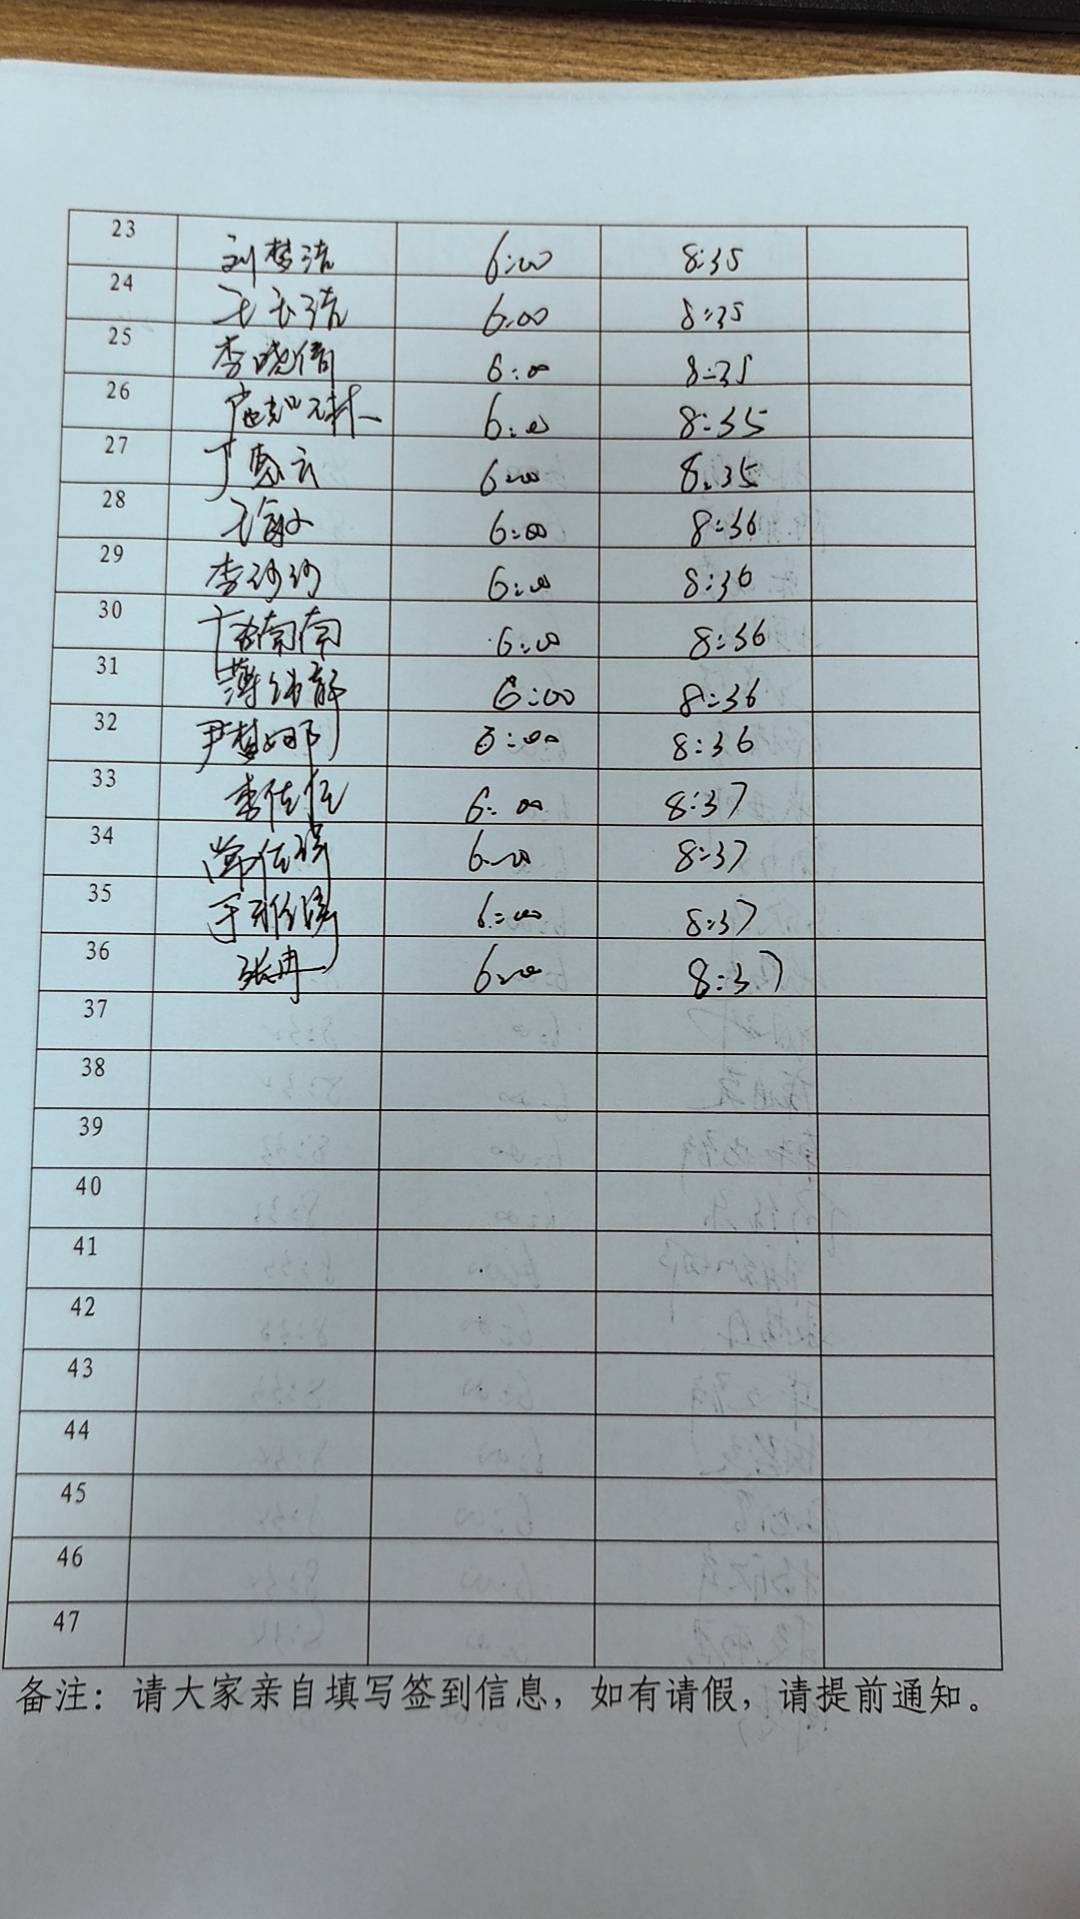 23 刘梦洁 6:00 8:35
24 王玉洁 6:00 8:35
25 李晓倩 6:00 8:35
26 6:00 8:35
27 丁惠云 6:00 8:35
28 王敏 6:00 8:36
29 李珂珂 6:00 8:36
30 南南 6:00 8:36
31 薄 静 6:00 8:36
32 尹梦娜 6:00 8:36
33 李佳 6:00 8:37
34 佳 6:00 8:37
35 于雅 6:00 8:37
36 张冉 6:00 8:37
37
38
39
40
41
42
43
44
45
46
47
备注：请大家亲自填写签到信息，如有请假，请提前通知。